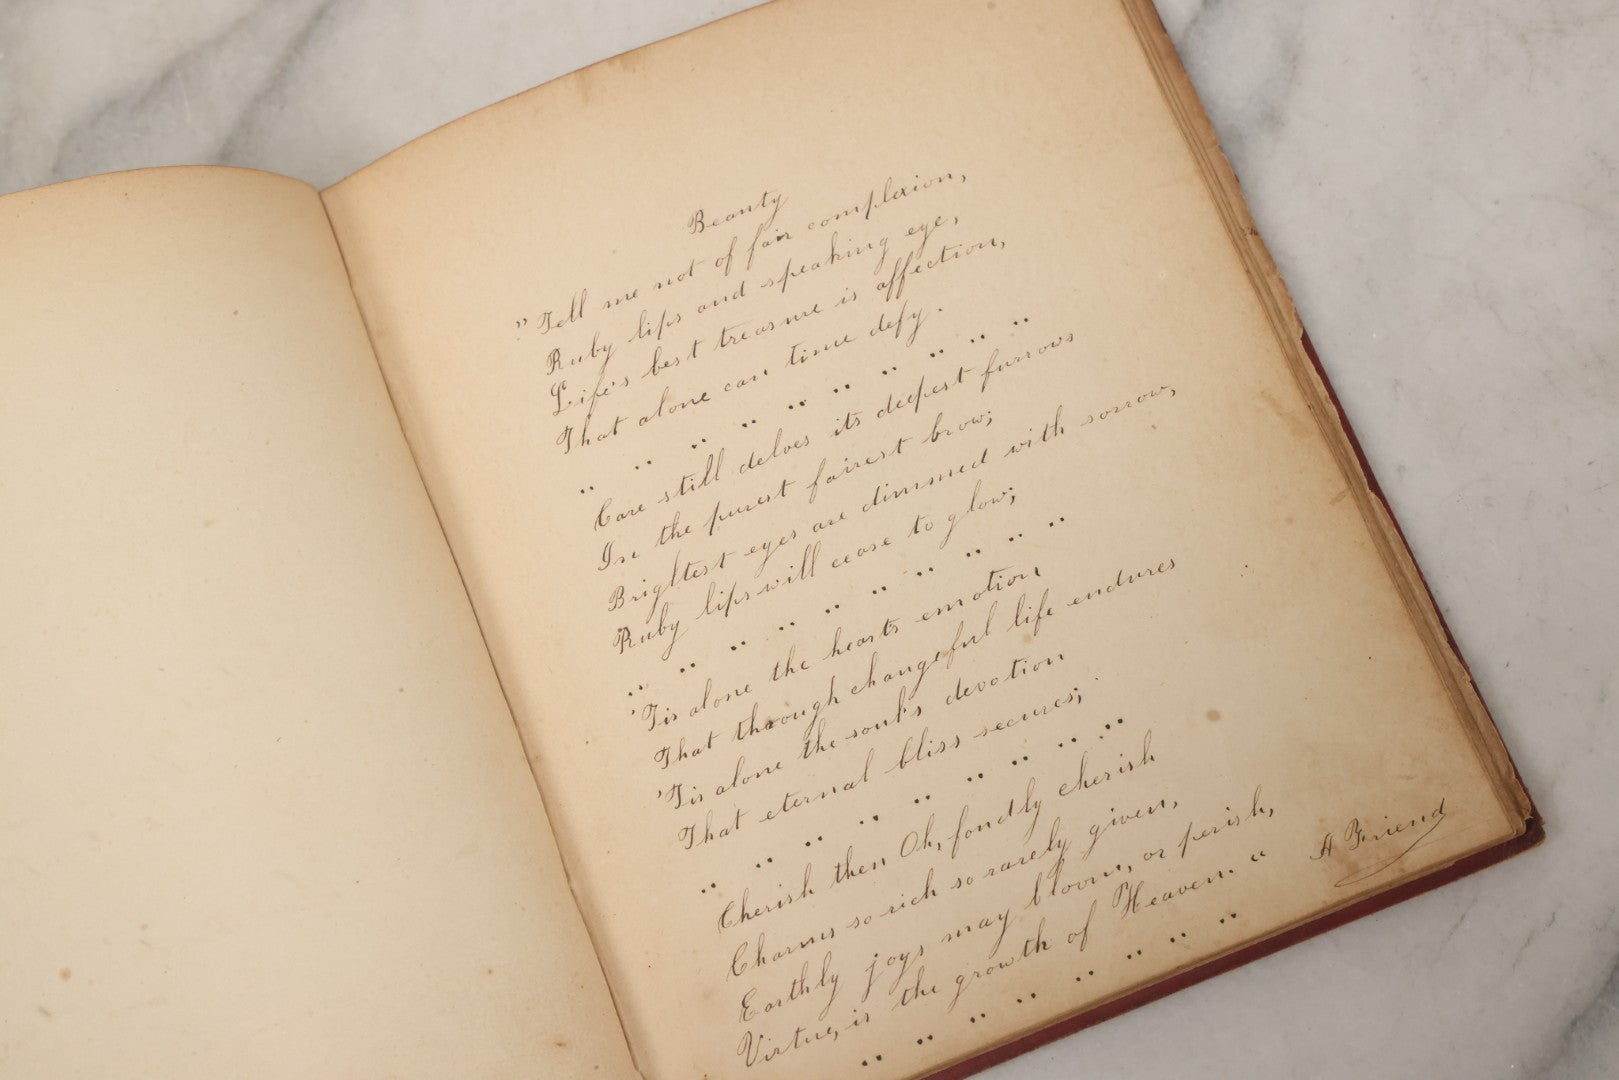 Beauty
" Tell me not of fair complexion,
Ruby lips and speaking eye,
Life's best treasure is affection,
That alone can time defy.
Care still delves its deepest furrows
In the purest fairest brow;
Brightest eyes are dimmed with sorrow,
Ruby lips will cease to glow;
'Tis alone the heart's emotion
That through changeful life endures
'Tis alone the soul's devotion
That eternal bliss secures;
Cherish then Oh, fondly cherish
Charms so rich so rarely given,
Earthly joys may bloom, or perish,
Virtue, is the growth of Heaven. "
A Friend